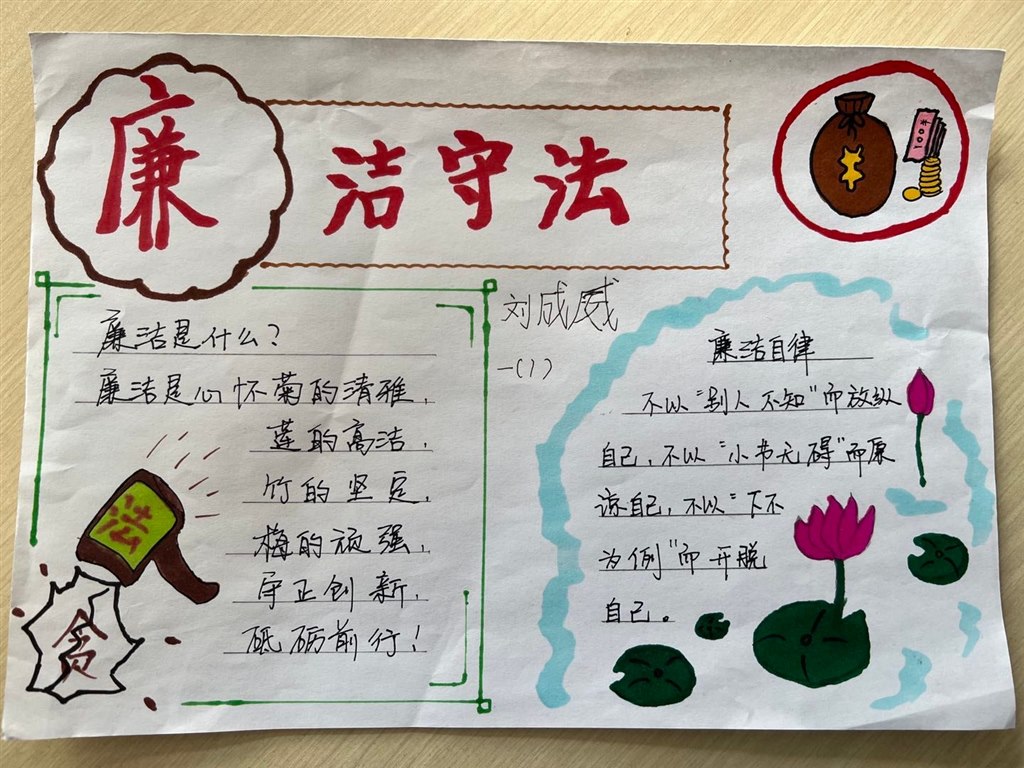 廉洁守法
100元
刘成威
一(1)
廉洁是什么?
廉洁是心怀菊的清雅,
莲的高洁,
竹的坚定,
梅的顽强,
守正创新,
砥砺前行!
法
贪
廉洁自律
不以“别人不知”而放纵
自己,不以“小节无碍”而原
谅自己,不以“下不
为例”而开脱
自己。